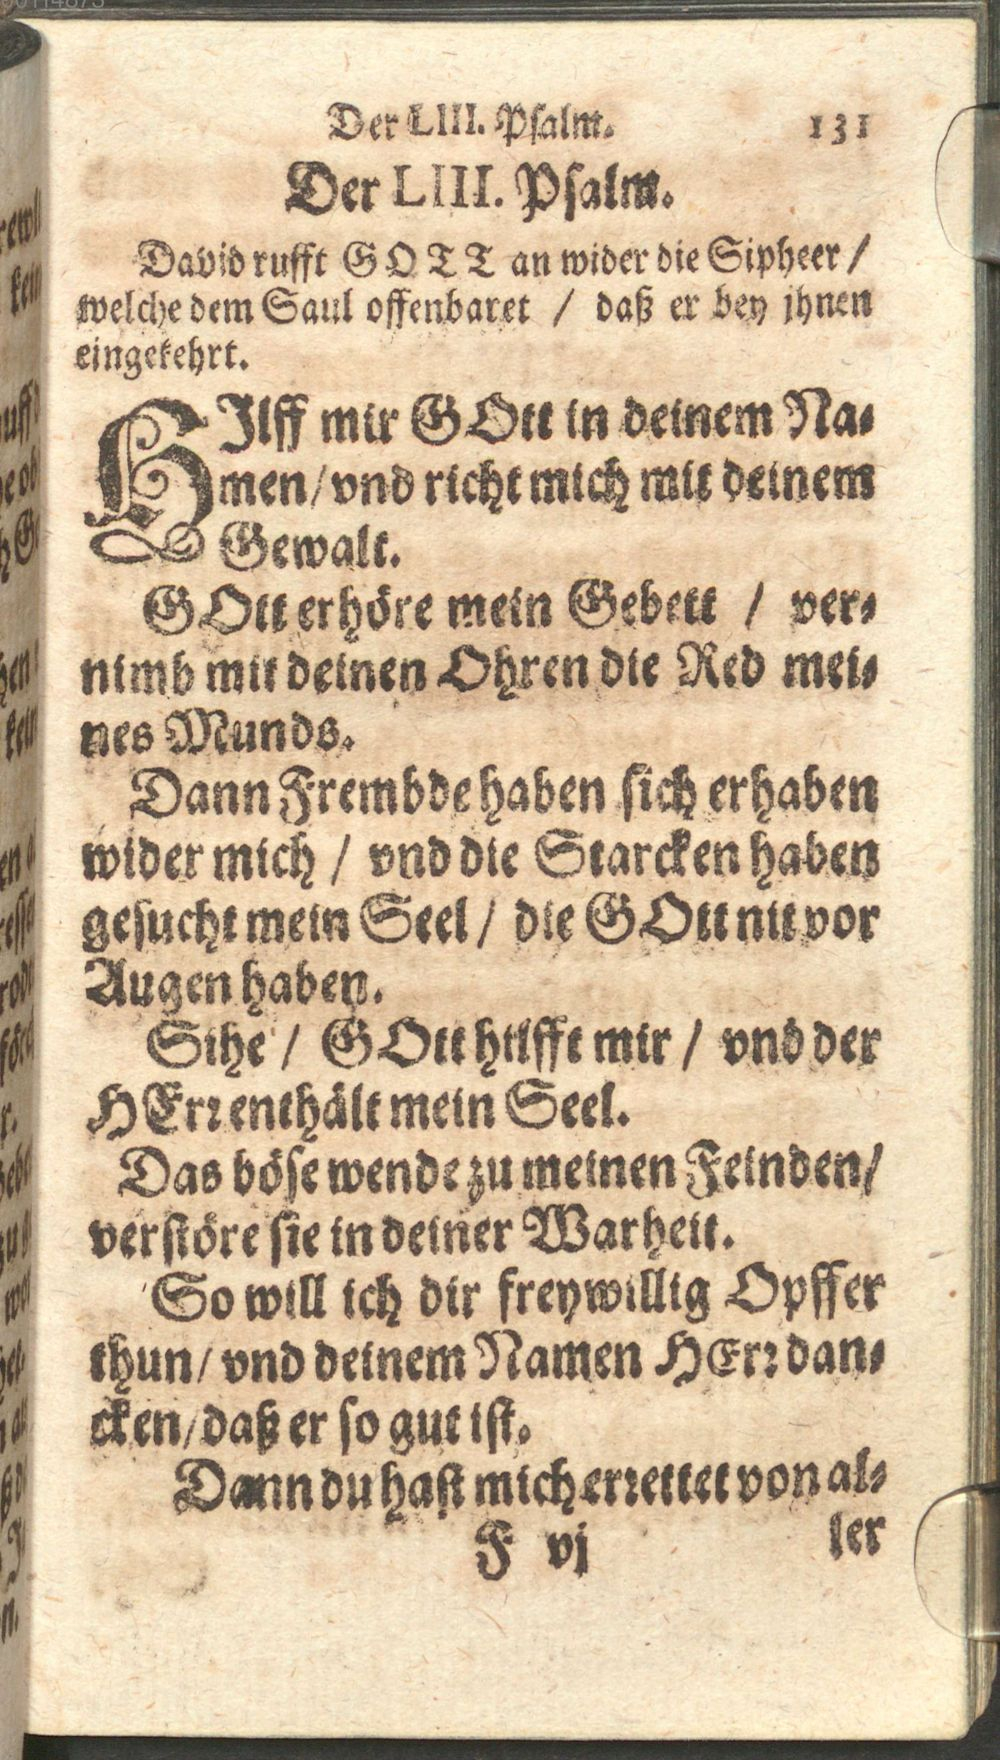 Der LIII. Psalm. 131
Der LIII. Psalm.
David rufft GOTT an wider die Sipheer /
welche dem Saul offenbaret / daß er bey jhnen
eingekehrt.
HIlff mir GOtt in deinem Na-
men/ vnd richt mich mit deinem
Gewalt.
GOtt erhöre mein Gebett / ver-
nimb mit deinen Ohren die Red mei-
nes Munds.
Dann Frembde haben sich erhaben
wider mich / vnd die Starcken haben
gesucht mein Seel / die GOtt nit vor
Augen haben.
Sihe / GOtt hilfft mir / vnd der
HErr enthält mein Seel.
Das böse wende zu meinen Feinden/
verstöre sie in deiner Warheit.
So will ich dir freywillig Opffer
thun/ vnd deinem Namen HErr dan-
cken/ daß er so gut ist.
Dann du hast mich errettet von al-
F vj ler